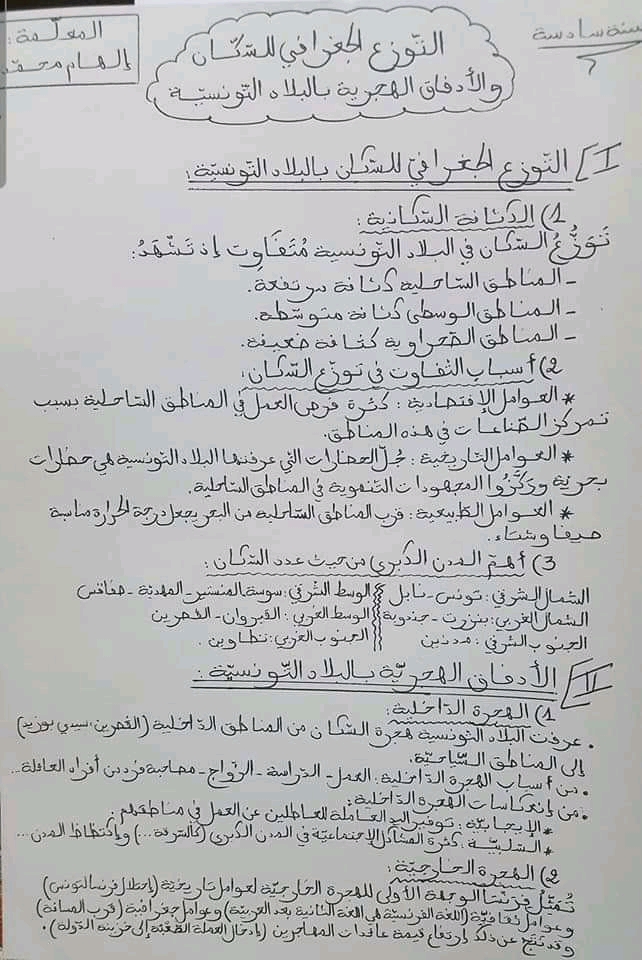 سنة سادسة
المعلّمة:
إلهام محمد
التّوزع الجغرافي للسّكّان
والأدفاق الهجرية بالبلاد التّونسيّة
I التّوزع الجغرافيّ للسّكان بالبلاد التّونسيّة:
1) الكثافة السّكانية:
تَوَزُّعُ السّكان في البلاد التّونسية مُتَفَاوِت إذ تَشْهَدُ:
- المناطق السّاحلية كثافة مرتفعة.
- المناطق الوسطى كثافة متوسّطة.
- المناطق الصّحراوية كثافة ضعيفة.
2) أسباب التّفاوت في توزّع السّكان:
* العوامل الإقتصادية: كثرة فرص العمل في المناطق السّاحلية بسبب
تمركز الصّناعات في هذه المناطق.
* العوامل التّاريخية: جُلّ الحضارات التي عرفتها البلاد التّونسية هي حضارات
بحرية وركّزوا المجهودات التّنموية في المناطق السّاحلية.
* العوامل الطّبيعية: قرب المناطق السّاحلية من البحر يجعل درجة الحرارة مناسبة
صيفا وشتاء.
3) أهمّ المدن الكبرى من حيث عدد السّكان:
الشمال الشّرقي: تونس - نابل الوسط الشّرقي: سوسة - المنستير - المهديّة - صفاقس
الشمال الغربي: بنزرت - جندوبة الوسط الغربي: القيروان - القصرين
الجنوب الشّرقي: مدنين الجنوب الغربي: تطاوين.
II الأدفاق الهجريّة بالبلاد التّونسيّة:
1) الهجرة الدّاخلية:
• عرفت البلاد التّونسية هجرة السّكان من المناطق الدّاخلية (القصرين، سيدي بوزيد)
إلى المناطق السّياحيّة.
• من أسباب الهجرة الدّاخلية: العمل - الدّراسة - الزّواج - مصاحبة فرد من أفراد العائلة...
• من إنعكاسات الهجرة الدّاخلية:
* الإيجابيّة: توفير اليد العاملة للعاطلين عن العمل في مناطقهم.
* السّلبيّة: كثرة المشاكل الإجتماعيّة في المدن الكبرى (كالسّرقة...) وإكتظاظ المدن...
2) الهجرة الخارجيّة:
تُمَثِّلُ فرنسا الوجهة الأولى للهجرة الخارجيّة لعوامل تاريخيّة (إحتلال فرنسا لتونس)
وعوامل ثقافيّة (اللغة الفرنسيّة هي اللغة الثانية بعد العربية) وعوامل جغرافية (قرب المسافة)
وقد نتج عن ذلك إرتفاع قيمة عائدات المهاجرين (إدخال العملة الصّعبة إلى خزينة الدّولة).